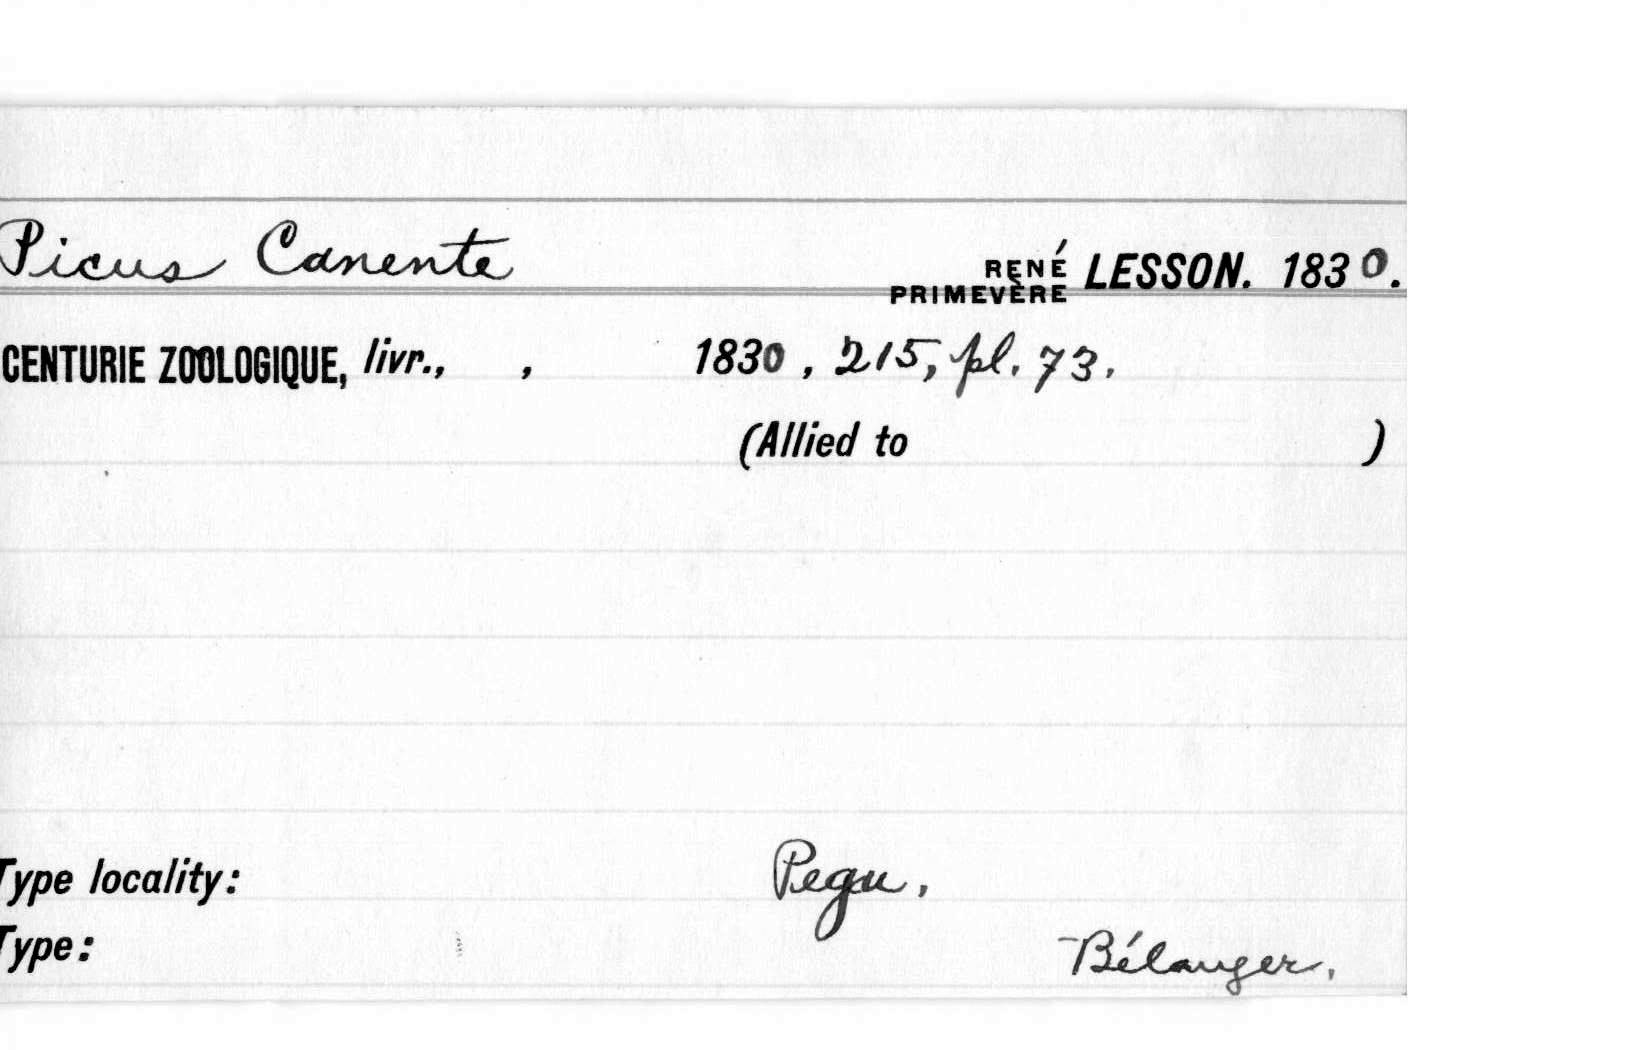 Picus Canente
RENÉ PRIMEVÈRE LESSON. 1830.
CENTURIE ZOOLOGIQUE, livr., , 1830, 215, pl. 73.
(Allied to )
Type locality: Pegu.
Type: Bélanger.